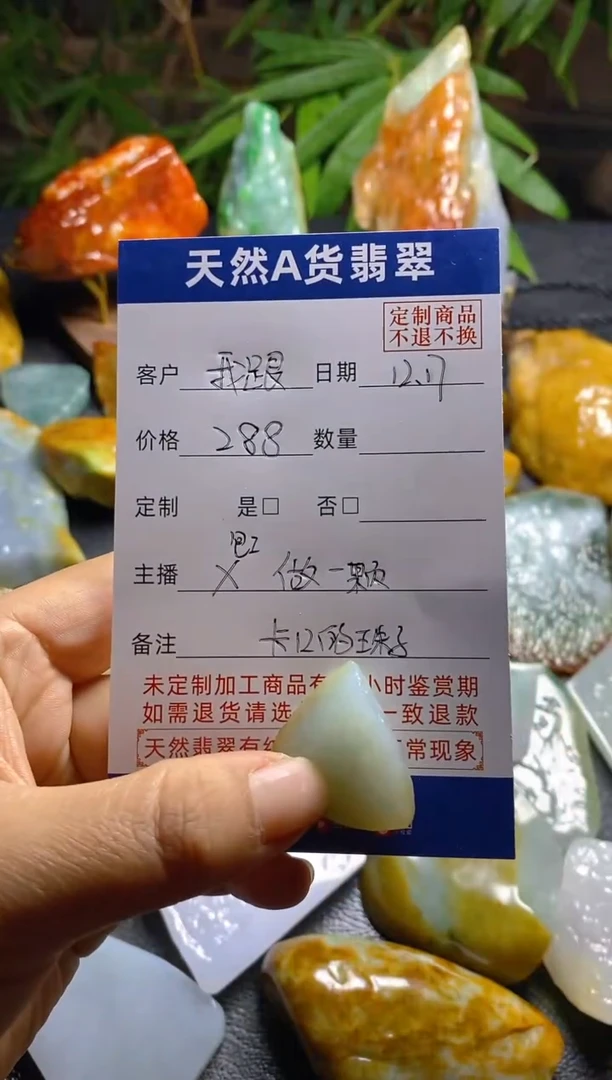 天然A货翡翠
定制商品
不退不换
客户 我 日期 12.17
价格 288 数量
定制 是□ 否□
包工
主播 X 做一颗
备注 卡口的珠子
未定制加工商品有 小时鉴赏期
如需退货请选 一致退款
天然翡翠有 常现象